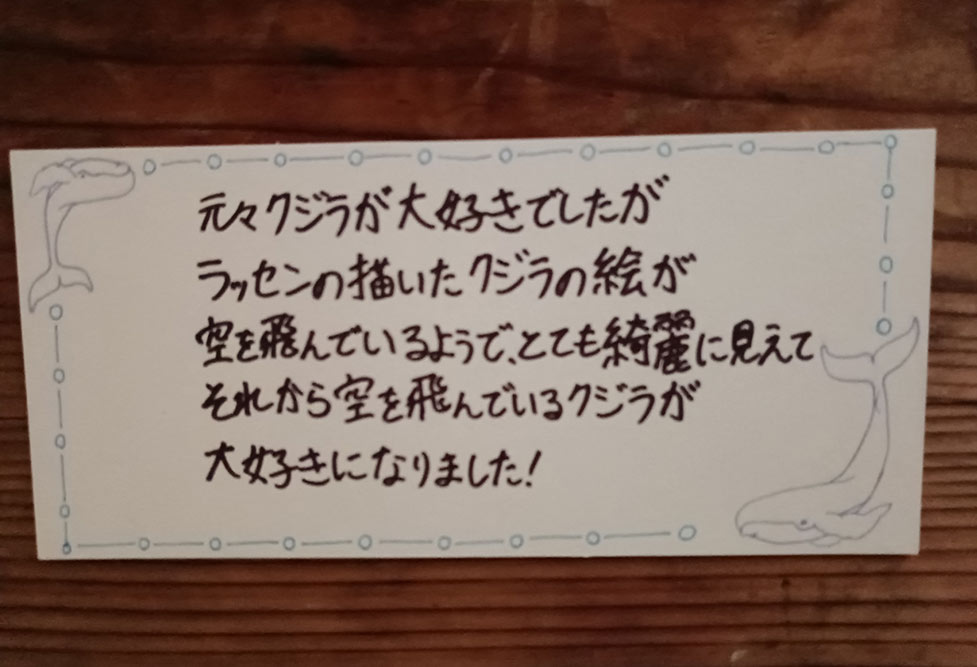 元々クジラが大好きでしたが
ラッセンの描いたクジラの絵が
空を飛んでいるようで、とても綺麗に見えて
それから空を飛んでいるクジラが
大好きになりました!